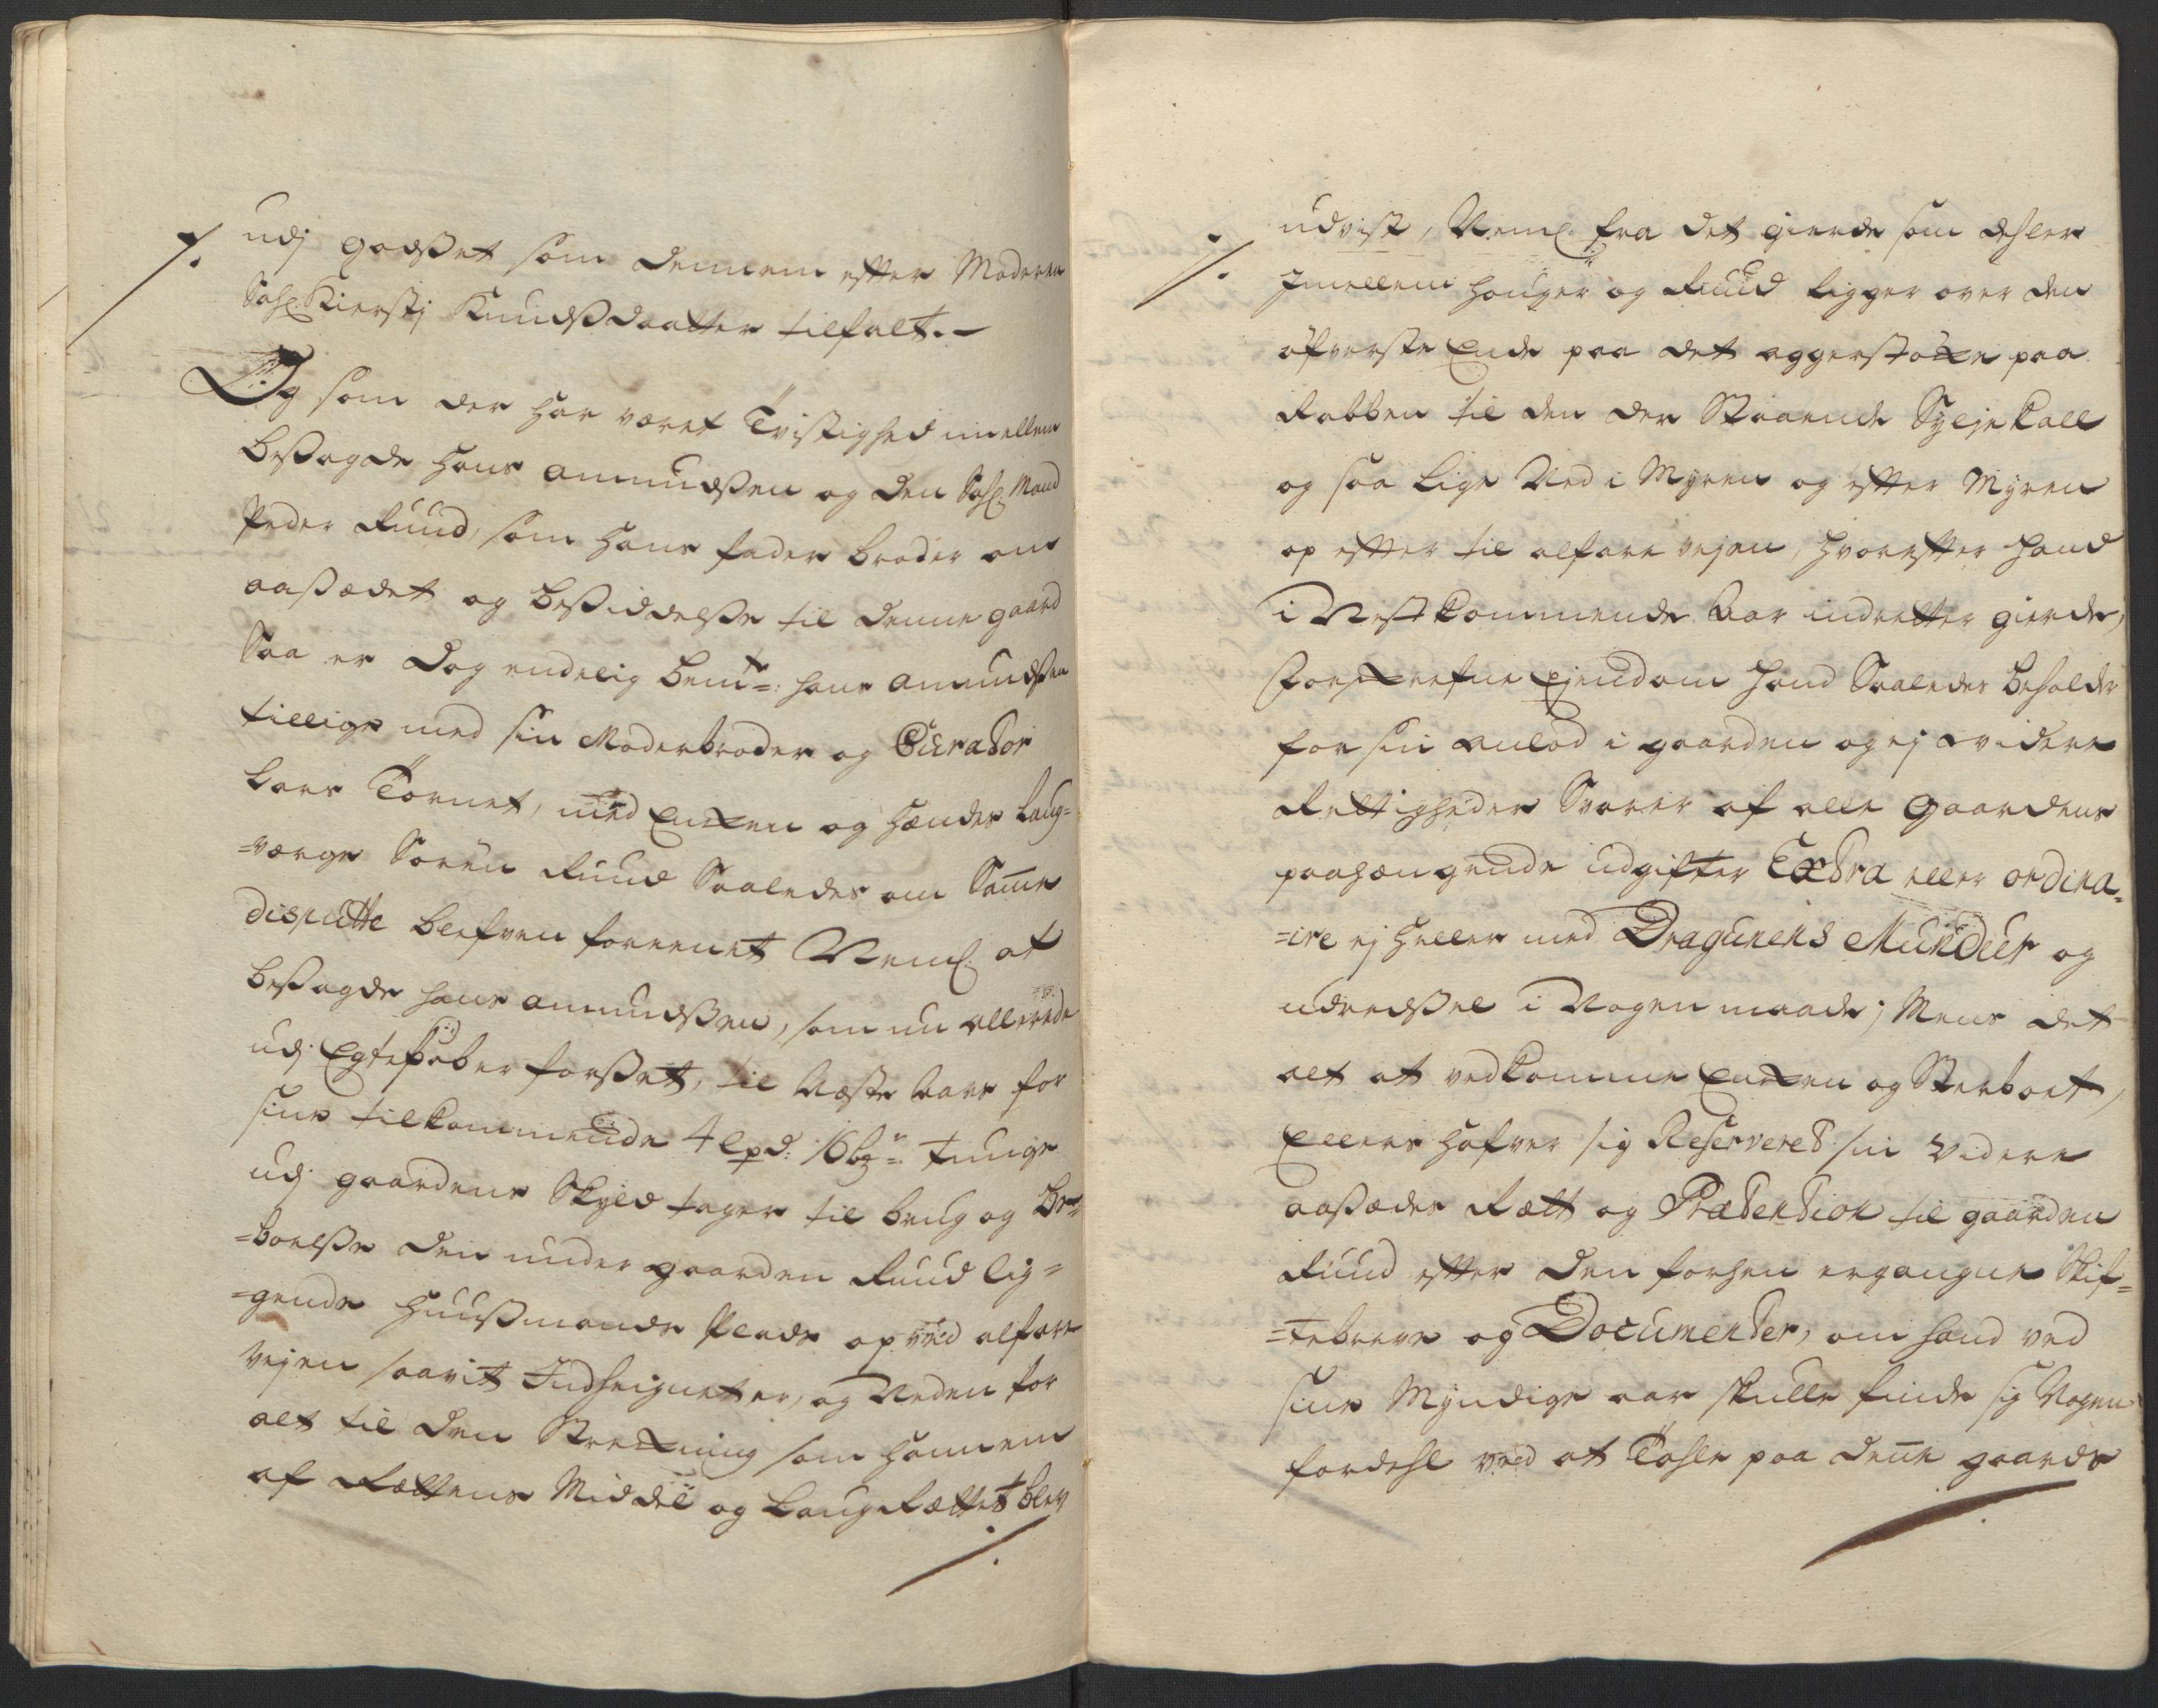 udj godset som dennem efter Moderen
Sahl: Kierstj Knudsdaatter tilfalt.-
Og som der har været Tvistighed imellem
bessagde Hans Amundssen og den Sahl: Mand
Peder Ruud, som Hans fader broder om
aassædet og besiddelsse til denne gaard
Saa er dog endelig bemte: Hans Amundssen
tillige med sin Moderbroder og Curator
Lars Tornet, med Enken og hendes Laug-
=værge Søren Ruud Saaledes om Samme
dispütte blefven foreenet Neml: at
bessagde Hans Amundssen, som nu allerede
udj Egteskaber forsset, til næste Aars for
sine tilkommende 4 Lpd: 16 bz: tunge
udj gaardens Skyld tager til brug og Be-
=boelsse den under gaarden Ruud lig=
=gende Huussmands Plads op ved alfare
vejen saavit Indheignet er, og Neden for
alt til den Strekning som hannem
af Rættens Middel og Laug Rættet blev
./.
./. udvist, Neml: fra det gierde som dehler
Jmellem Houger og Ruud ligger over den
öfverste Ende paa det aggerstökke paa
Rabben til den der Staaende Sylje Kall
og saa lige Ned i Myren og efter Myren
op efter til alfare vejen, hvorefter hand
i Nestkommende Aar indretter gierde,
Forskrefne Ejendom hand Saaledes beholder
for sin anlod i gaarden og ej videre
Rettigheder Svarer af alle Gaardens
paahængende udgifter Extra eller ordina-
=ire ej heller med Dragunens Mundeur og
udredssel i Nogen maade; Mens det
alt at vedkomme Enken og Sterboet,
Ellers hafver sig Reserveret sin Videre
aassædes Rætt og Prætention til gaarden
Ruud efter den forhen ergangne Skif=
=tebreve og Documenter, om hand ved
sine Myndige aar skulle finde sig Nogen
fordehl ved at Tahle paa denne gaards